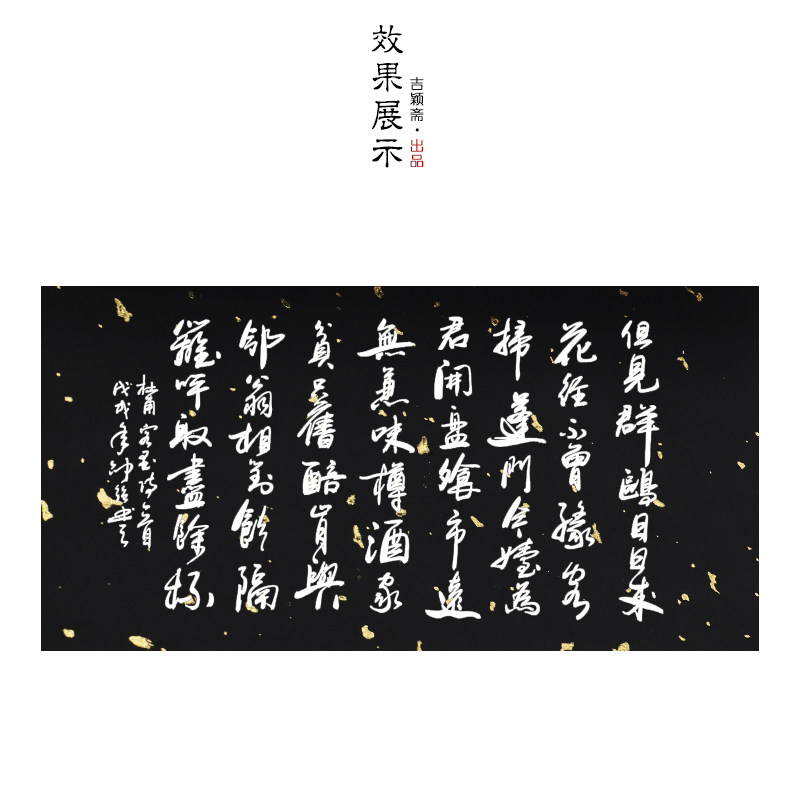 效果展示
吉颖斋·出品
但見群鷗日日来
花徑不曾緣客
掃蓬門今始為
君開盤飧市遠
無兼味樽酒家
貧只舊醅肯與
鄰翁相對飲隔
籬呼取盡餘杯
杜甫客至詩一首
戊戌年書